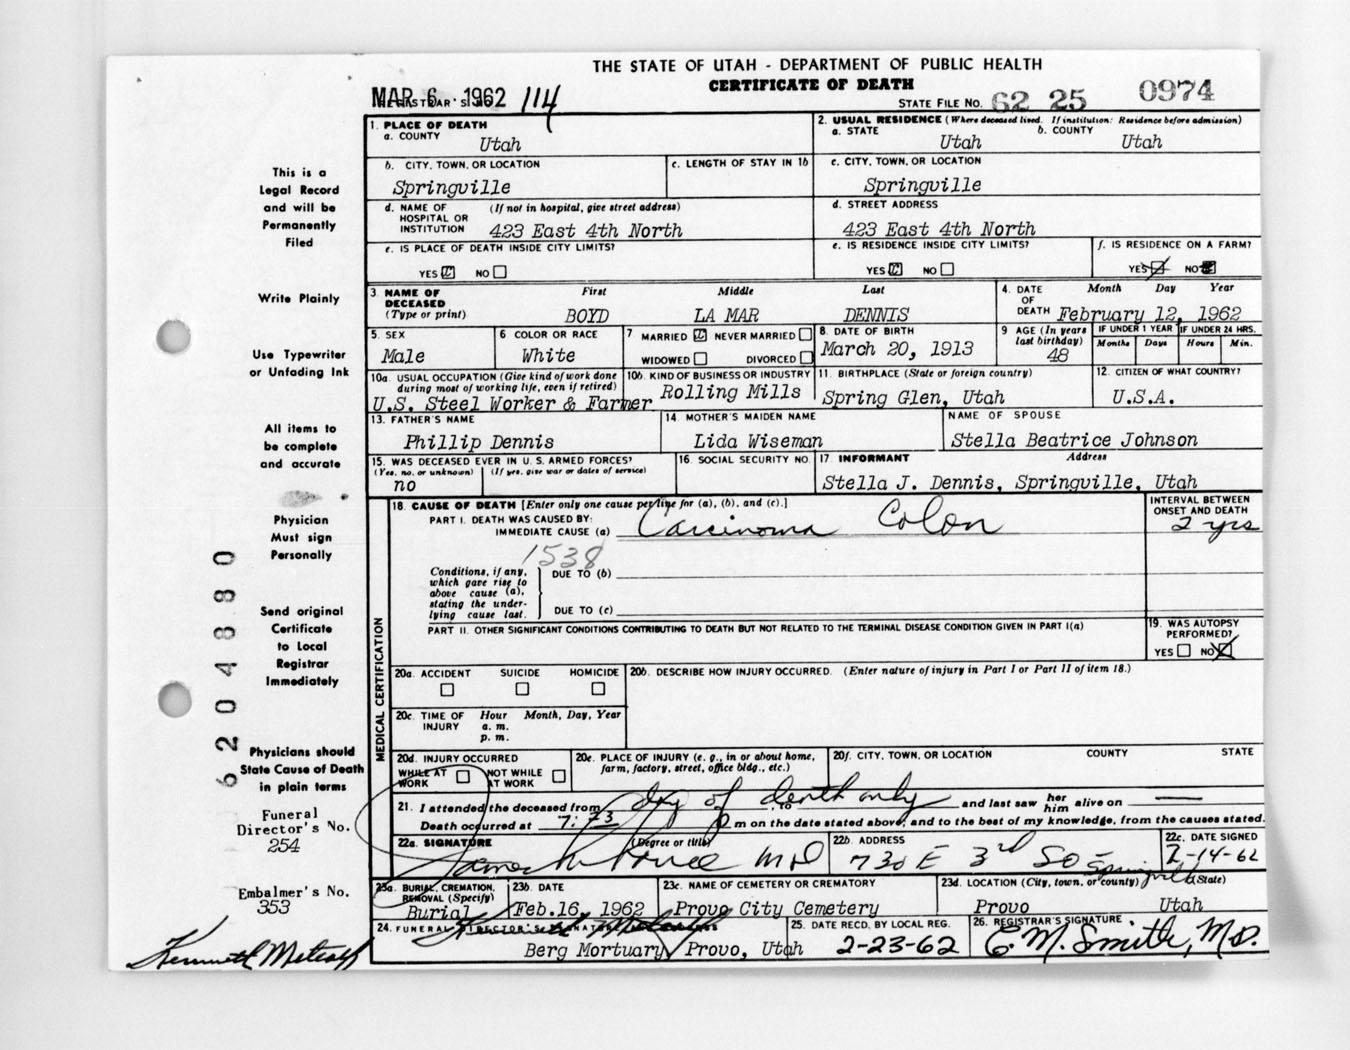 THE STATE OF UTAH - DEPARTMENT OF PUBLIC HEALTH
CERTIFICATE OF DEATH
MAR 6 1962 114
STATE FILE NO. 62 25 0974
1. PLACE OF DEATH
a. COUNTY
Utah
2. USUAL RESIDENCE (Where deceased lived. If institution: Residence before admission)
a. STATE b. COUNTY
Utah Utah
b. CITY, TOWN, OR LOCATION
Springville
c. LENGTH OF STAY IN 1b
c. CITY, TOWN, OR LOCATION
Springville
d. NAME OF HOSPITAL OR INSTITUTION (If not in hospital, give street address)
423 East 4th North
d. STREET ADDRESS
423 East 4th North
e. IS PLACE OF DEATH INSIDE CITY LIMITS?
YES NO
e. IS RESIDENCE INSIDE CITY LIMITS?
YES NO
f. IS RESIDENCE ON A FARM?
YES NO
3. NAME OF DECEASED (Type or print)
First Middle Last
BOYD LA MAR DENNIS
4. DATE OF DEATH Month Day Year
February 12, 1962
5. SEX
Male
6 COLOR OR RACE
White
7 MARRIED NEVER MARRIED
WIDOWED DIVORCED
8. DATE OF BIRTH
March 20, 1913
9 AGE (In years last birthday)
48
IF UNDER 1 YEAR
Months Days
IF UNDER 24 HRS.
Hours Min.
10a. USUAL OCCUPATION (Give kind of work done during most of working life, even if retired)
U.S. Steel Worker & Farmer
10b. KIND OF BUSINESS OR INDUSTRY
Rolling Mills
11. BIRTHPLACE (State or foreign country)
Spring Glen, Utah
12. CITIZEN OF WHAT COUNTRY?
U.S.A.
13. FATHER'S NAME
Phillip Dennis
14. MOTHER'S MAIDEN NAME
Lida Wiseman
NAME OF SPOUSE
Stella Beatrice Johnson
15. WAS DECEASED EVER IN U.S. ARMED FORCES?
(Yes, no, or unknown) (If yes, give war or dates of service)
no
16. SOCIAL SECURITY NO.
17. INFORMANT Address
Stella J. Dennis, Springville, Utah
MEDICAL CERTIFICATION
18. CAUSE OF DEATH [Enter only one cause per line for (a), (b), and (c).]
PART I. DEATH WAS CAUSED BY:
IMMEDIATE CAUSE (a) Carcinoma Colon
INTERVAL BETWEEN ONSET AND DEATH
2 yrs
1538
Conditions, if any, which gave rise to above cause (a), stating the underlying cause last.
DUE TO (b)
DUE TO (c)
PART II. OTHER SIGNIFICANT CONDITIONS CONTRIBUTING TO DEATH BUT NOT RELATED TO THE TERMINAL DISEASE CONDITION GIVEN IN PART I(a)
19. WAS AUTOPSY PERFORMED?
YES NO
20a. ACCIDENT SUICIDE HOMICIDE
20b. DESCRIBE HOW INJURY OCCURRED. (Enter nature of injury in Part I or Part II of item 18.)
20c. TIME OF INJURY Hour Month, Day, Year
a. m.
p. m.
20d. INJURY OCCURRED
WHILE AT WORK NOT WHILE AT WORK
20e. PLACE OF INJURY (e. g., in or about home, farm, factory, street, office bldg., etc.)
20f. CITY, TOWN, OR LOCATION COUNTY STATE
21. I attended the deceased from day of, to death only and last saw her him alive on
Death occurred at m on the date stated above; and to the best of my knowledge, from the causes stated.
22a. SIGNATURE (Degree or title)
James MD
22b. ADDRESS
730 E 3rd So - Springville
22c. DATE SIGNED
2-14-62
23a. BURIAL, CREMATION, REMOVAL (Specify)
Burial
23b. DATE
Feb.16, 1962
23c. NAME OF CEMETERY OR CREMATORY
Provo City Cemetery
23d. LOCATION (City, town, or county) (State)
Provo Utah
24. FUNERAL DIRECTOR'S SIGNATURE
Berg Mortuary, Provo, Utah
25. DATE RECD. BY LOCAL REG.
2-23-62
26. REGISTRAR'S SIGNATURE
C. M. Smith, M.D.
This is a
Legal Record
and will be
Permanently
Filed
Write Plainly
Use Typewriter
or Unfading Ink
All items to
be complete
and accurate
Physician
Must sign
Personally
Send original
Certificate
to Local
Registrar
Immediately
Physicians should
State Cause of Death
in plain terms
Funeral
Director's No.
254
Embalmer's No.
353
Kenneth Metcalf
62 04880